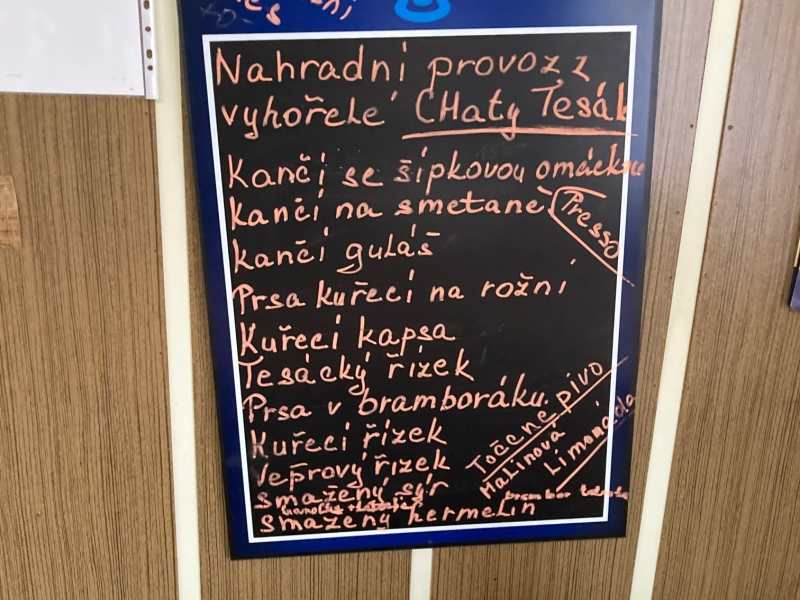 Nahradní provoz z
vyhořelé CHaty Tesák
Kančí se šípkovou omáčkou
kančí na smetaně
Presso
kančí guláš
Prsa kuřecí na rožní
Kuřecí kapsa
Tesácký řízek
Prsa v bramboráku
Kuřecí řízek
Veprový řízek
smažený sýr
smažený hermelín
Točené pivo
Malinová
Limonáda